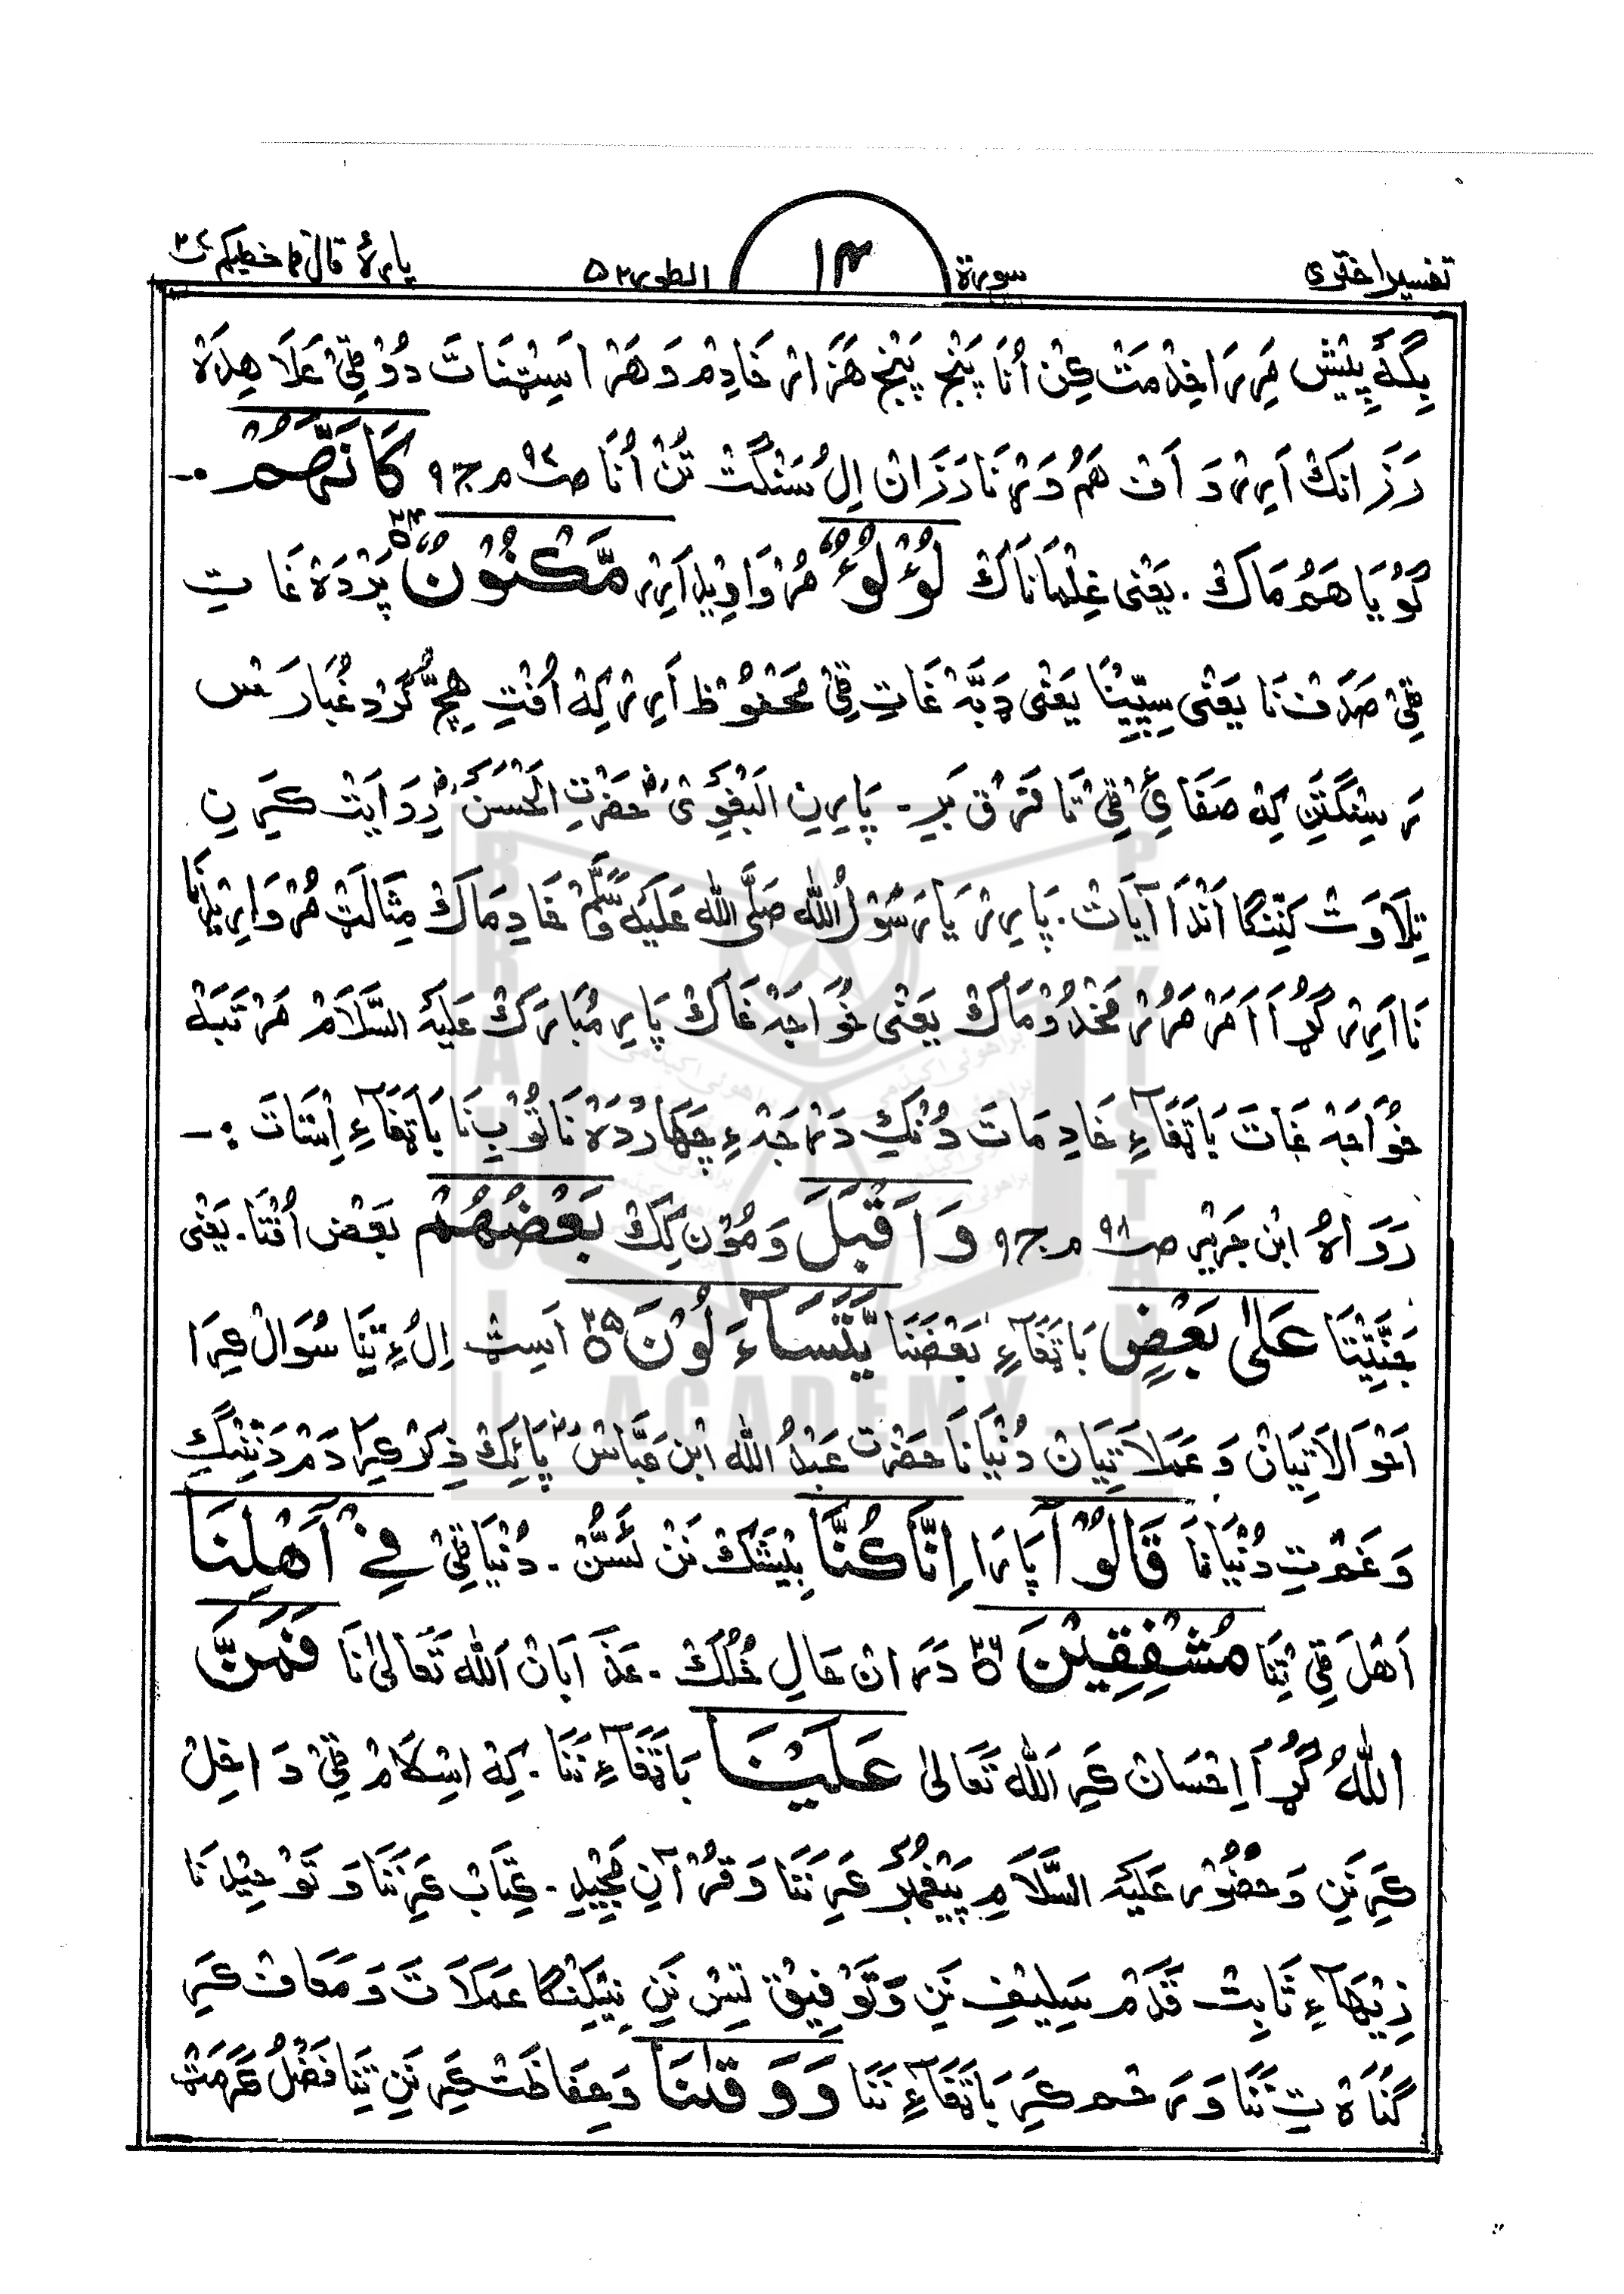 تفسیر اختری سورۃ ۱۴ الطور ۵۲ پارۂ قال فما خطبکم ۲۷
پیش خِدْمَتْ کِنْ اُنَا پَنْج پَنْج هَزَار خَادِمْ وَ هَرْ اَسِیْتِنَات دُوْ ٹِیْ عَلَا هِدَہْ
اَرِیْر وَ اَف هَمُ دَرْنَا دَزَان اِلُ سَنْگَتْ تُنْ اُنَا ص۹۷ م ج۹ کَاَنَّهُمْ :-
گُوْیَا هَمُ مَاکْ . یَعْنِی غِلْمَانَاکْ لُؤْلُؤٌ مُرْوَارِیْد اَرِیْر مَّكْنُوْنٌ ۲۴ پَرْدَہ غَاتِ
ٹِیْ صَدَفْ نَا یَعْنِی سِیْپِیْنَا یَعْنِی دَبَّہ غَاتِ ٹِیْ مَحْفُوْظ اَرِیْر کِہ اُفْتِ هِچّ گَرْد غُبَارَسْ
رَسِنْگتَنِ کِہ صَفَائِیْ ٹِیْ تَا فَرْق بَرِ - پَارِن الْبَغَوِیْ حَضْرَتِ الْحَسَنْ رِوَایَتْ کَرِنِ
تِلَاوَتْ کَنِنْگَا اَنْدَا آیَاتْ . پَارِیْر یَا رَسُوْلُ اللّٰہ صَلَّی اللّٰہ عَلَیْہِ وَسَلَّم خَادِمَاکْ مِثَالَتْ مُرْوَارِیْد نَا
نَا اَرِیْر گُڑَا اَمَرْ مَرُرْ مَخْدُوْمَاکْ یَعْنِی خُوَاجَہ غَاکْ پَارِ مُبَارَکْ عَلَیْہِ السَّلَامْ مَرْتَبَہ
خُوَاجَہ غَاتَ بَاتَغَاءِ خَادِمَاتَ دُنْکِ دَرْجَہءِ چَهَارْدَہ نَا تُوْبِ نَا بَاتَغَاءِ اِسْتَاتَ :-
رَوَاہُ ابْن جَرِیْر ص۹۸ م ج۹ وَاَقْبَلَ وَ مُوْن کِکْ بَعْضُهُمْ بَعْض اُفْتَا . یَعْنِی
جَنَّتِیْتَا عَلٰى بَعْضٍ بَاتَغَاءِ بَعْضَنَا يَّتَسَآءَلُوْنَ ۲۵ اَسِٹ اِلُءِ تِنَا سُوَالْ کِرَا
اَحْوَالَاتِیَان وَ عَمَلَاتِیَان دُنْیَانَا حَضْرَت عَبْدُ اللّٰہ ابْن عَبَّاسْ پَائِکْ ذِکْر کِرَا دَمْ دَنِنْگِ
وَ غَمْتِ دُنْیَانَا قَالُوْٓا پَارَا اِنَّا كُنَّا بِیْشَکْ نَنْ اَسُّنْ - دُنْیَا ٹِیْ فِيْ اَهْلِنَا
اَهْل ٹِیْ تِنَا مُشْفِقِيْنَ ۲۶ دَرَان حَالِ خُلُکْ - عَذَابَان اَللّٰہ تَعَالیٰ نَا فَمَنَّ
اللّٰهُ گُڑَا اِحْسَان کَرِ اَللّٰہ تَعَالیٰ عَلَيْنَا بَاتَغَاءِ نَنَا . کِہ اِسْلَامْ ٹِیْ دَاخِلْ
کَرِ نَنِ وَ حُضُوْر عَلَیْہِ السَّلَامِ پَیْغَمْبَرْ کَرِ نَنَا وَ قُرْآنِ مَجِیْدِ - کِتَابْ کَرِ نَنَا وَ تَوْحِیْد نَا
زِیْهَاءِ ثَابِتْ قَدَمْ سَلِیْفِ نَنِ وَ تَوْفِیْق تِسْ نَنِ نِیْکِنْگَا عَمَلَاتَ وَ مَعَافْ کَرِ
گُنَاہ تِ نَنَا وَ رَحْم کَرِ بَاتَغَاءِ نَنَا وَوَقٰنَا وَ حِفَاظَتْ کَرِ نَنِ تِنَا فَضْلُ کَرَمَتْ
BRAHUI ACADEMY PAKISTAN